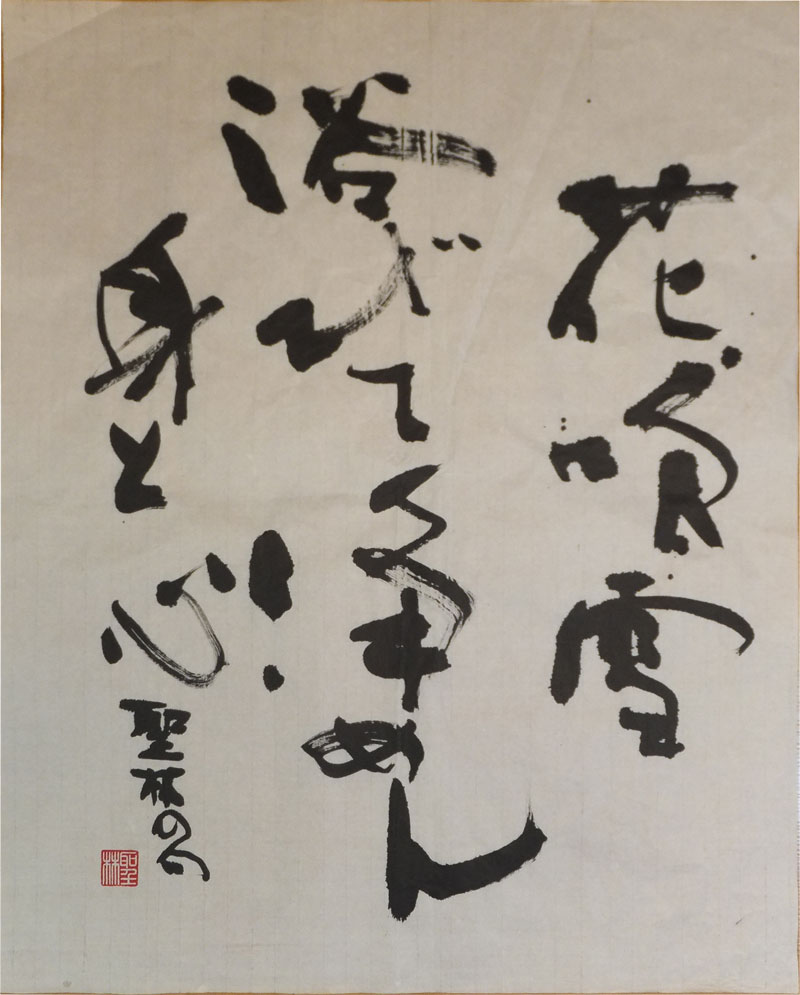 花吹雪
浴びて浄めん
身と心
聖林
聖林